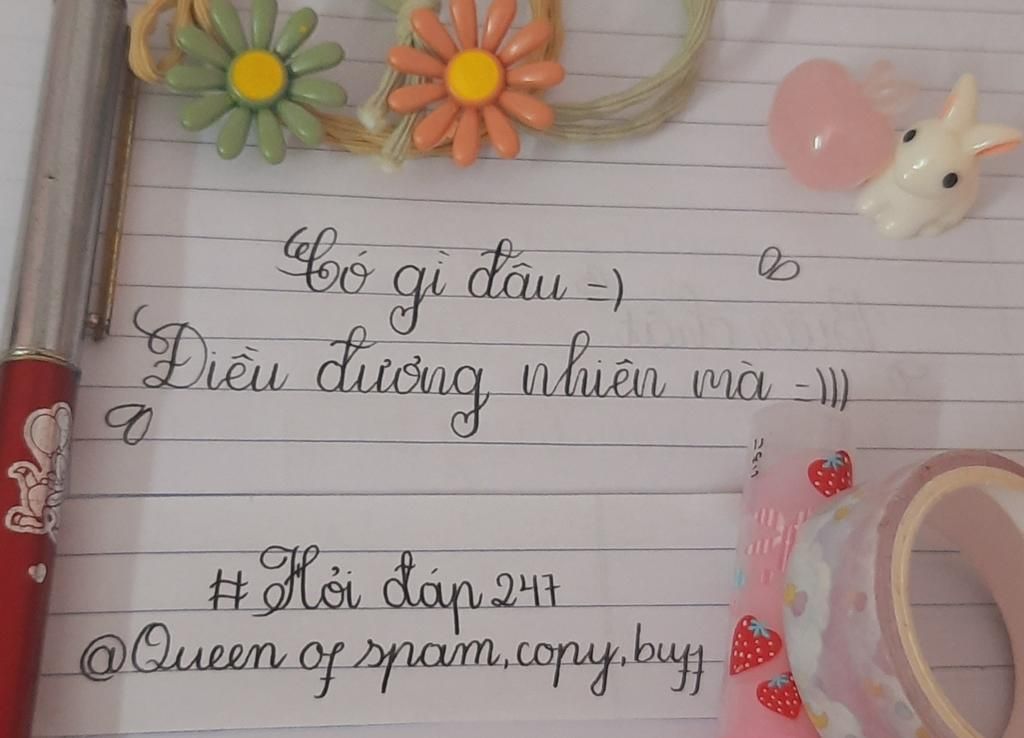 Có gì đâu =)
Điều đương nhiên mà =)))
# Hỏi đáp 247
@Queen of spam, copy, buff